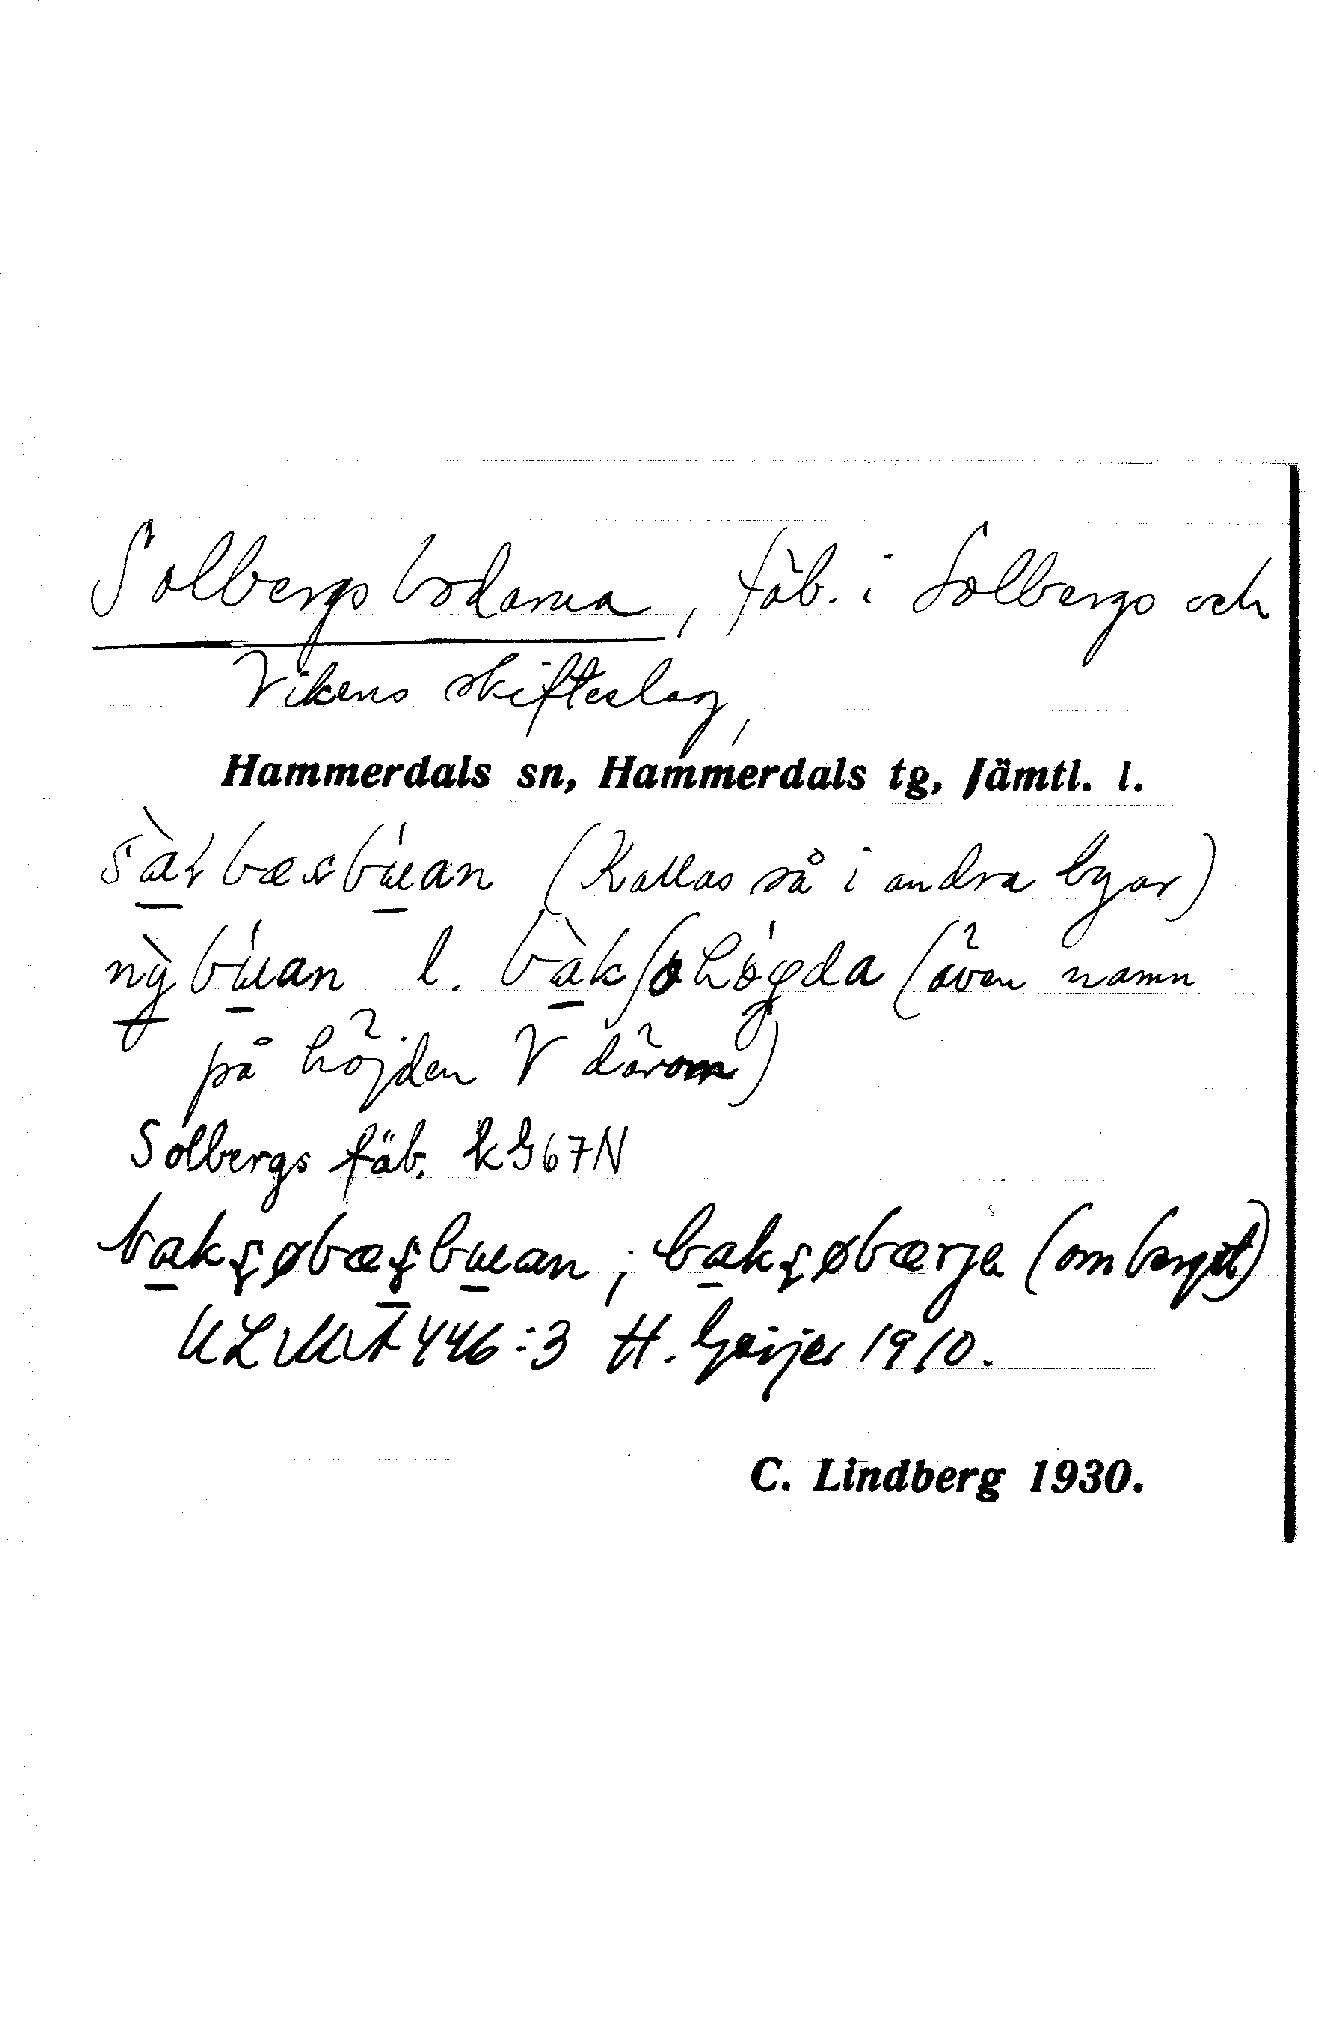 Solbergsbodarna, fäb. i Solbergs och
Vikens skifteslag,
Hammerdals sn, Hammerdals tg, Jämtl. l.
(Kallas så i andra byar)
nỳbúan l. bàkſohögda (även namn
på höjden V därom)
Solbergs fäb. kG67N
(om berget)
ULMA 446:3 H. Geijer 1910.
C. Lindberg 1930.